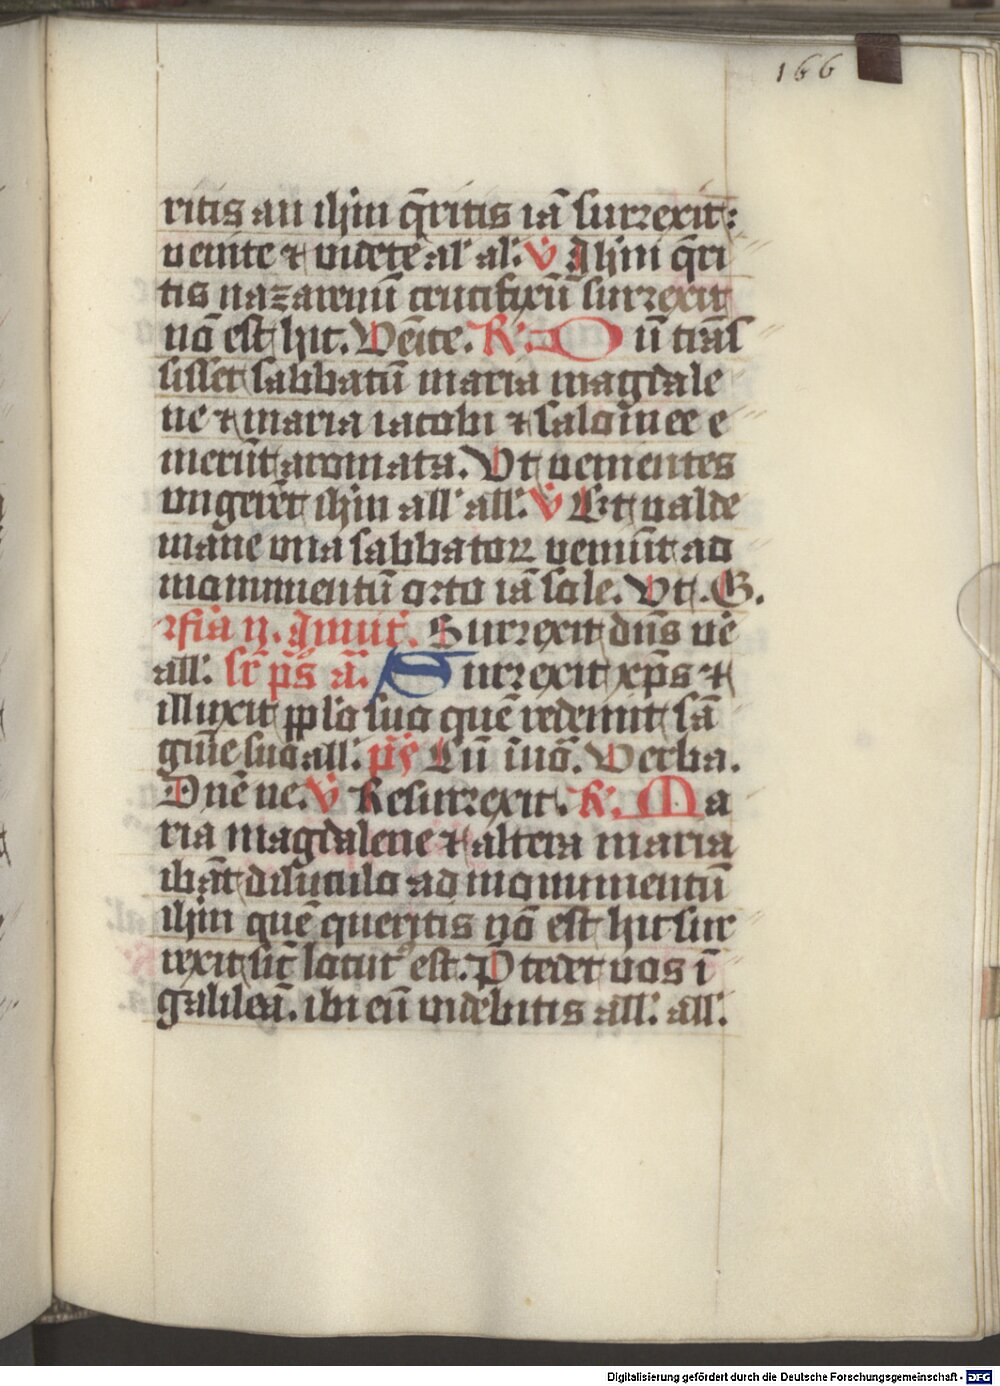 166
ritis an ihm̄ q̄ritis iā surrexit:
uenite ⁊ uidete al' al'. v̄ Ihm̄ q̄ri
tis nazarenū crucifixū surrexit
nō est hic. Venīte. R̄. Dū trās
sisset sabbatū maria magdale
ne ⁊ maria iacobi ⁊ salomee e
merūt aromata. Vt uenientes
ungerēt ihm̄ all' all'. v̄ Et ualde
mane una sabbatoꝝ ueniūt ad
monumentū orto iā sole. Vt. G.
fīa ij. Inuit̄. Surrexit dn̄s ue
all'. sr̄ ps̄ a. Surrexit xp̄s ⁊
illuxit pplo suo quē redemit sā
guīe suo all'. ps̄ Cū īuo. Verba.
Dnē ne. v̄ Resurrexit. R̄. Ma
ria magdalene ⁊ altera maria
ibāt diluculo ad monumentū
ihm̄ quē queritis nō est hic sur
rexit sic̄ locut' est. P̄cedet uos ī
galileā. ibi eū uidebitis all'. all'.
Digitalisierung gefördert durch die Deutsche Forschungsgemeinschaft - DFG